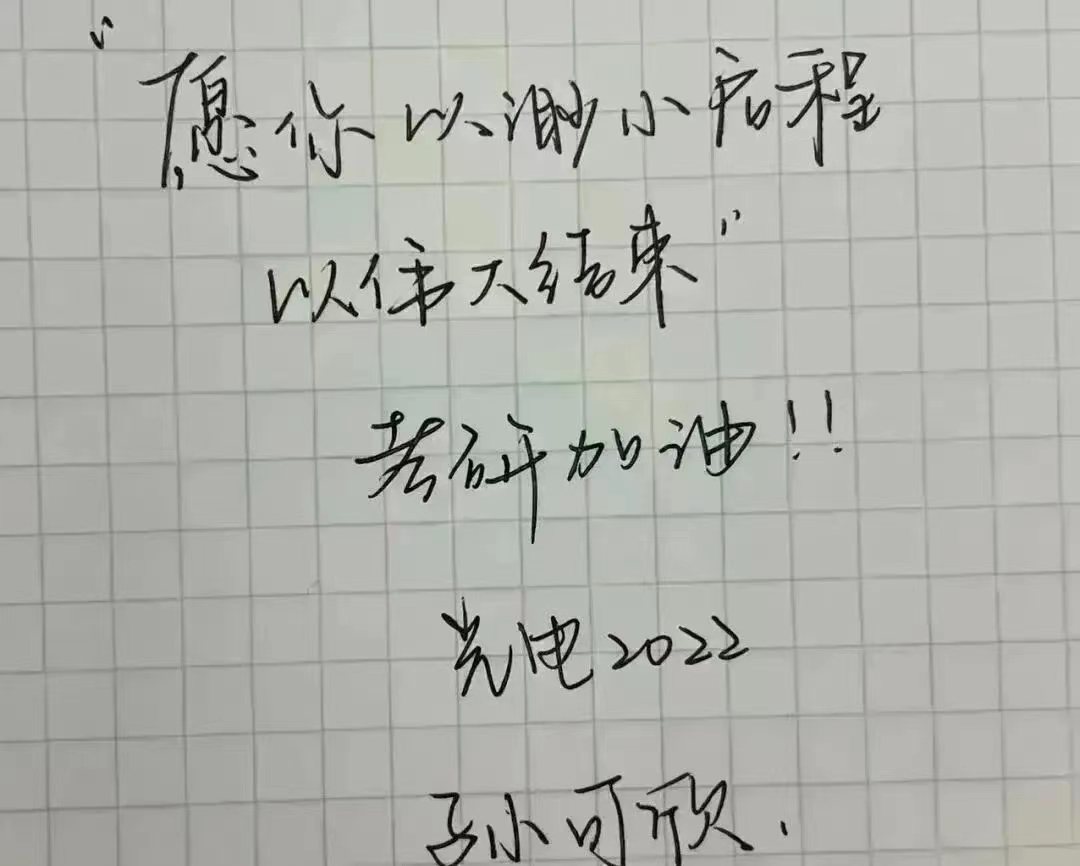 “愿你以渺小启程
以伟大结束”
考研加油!!
光电2022
孙可欣.